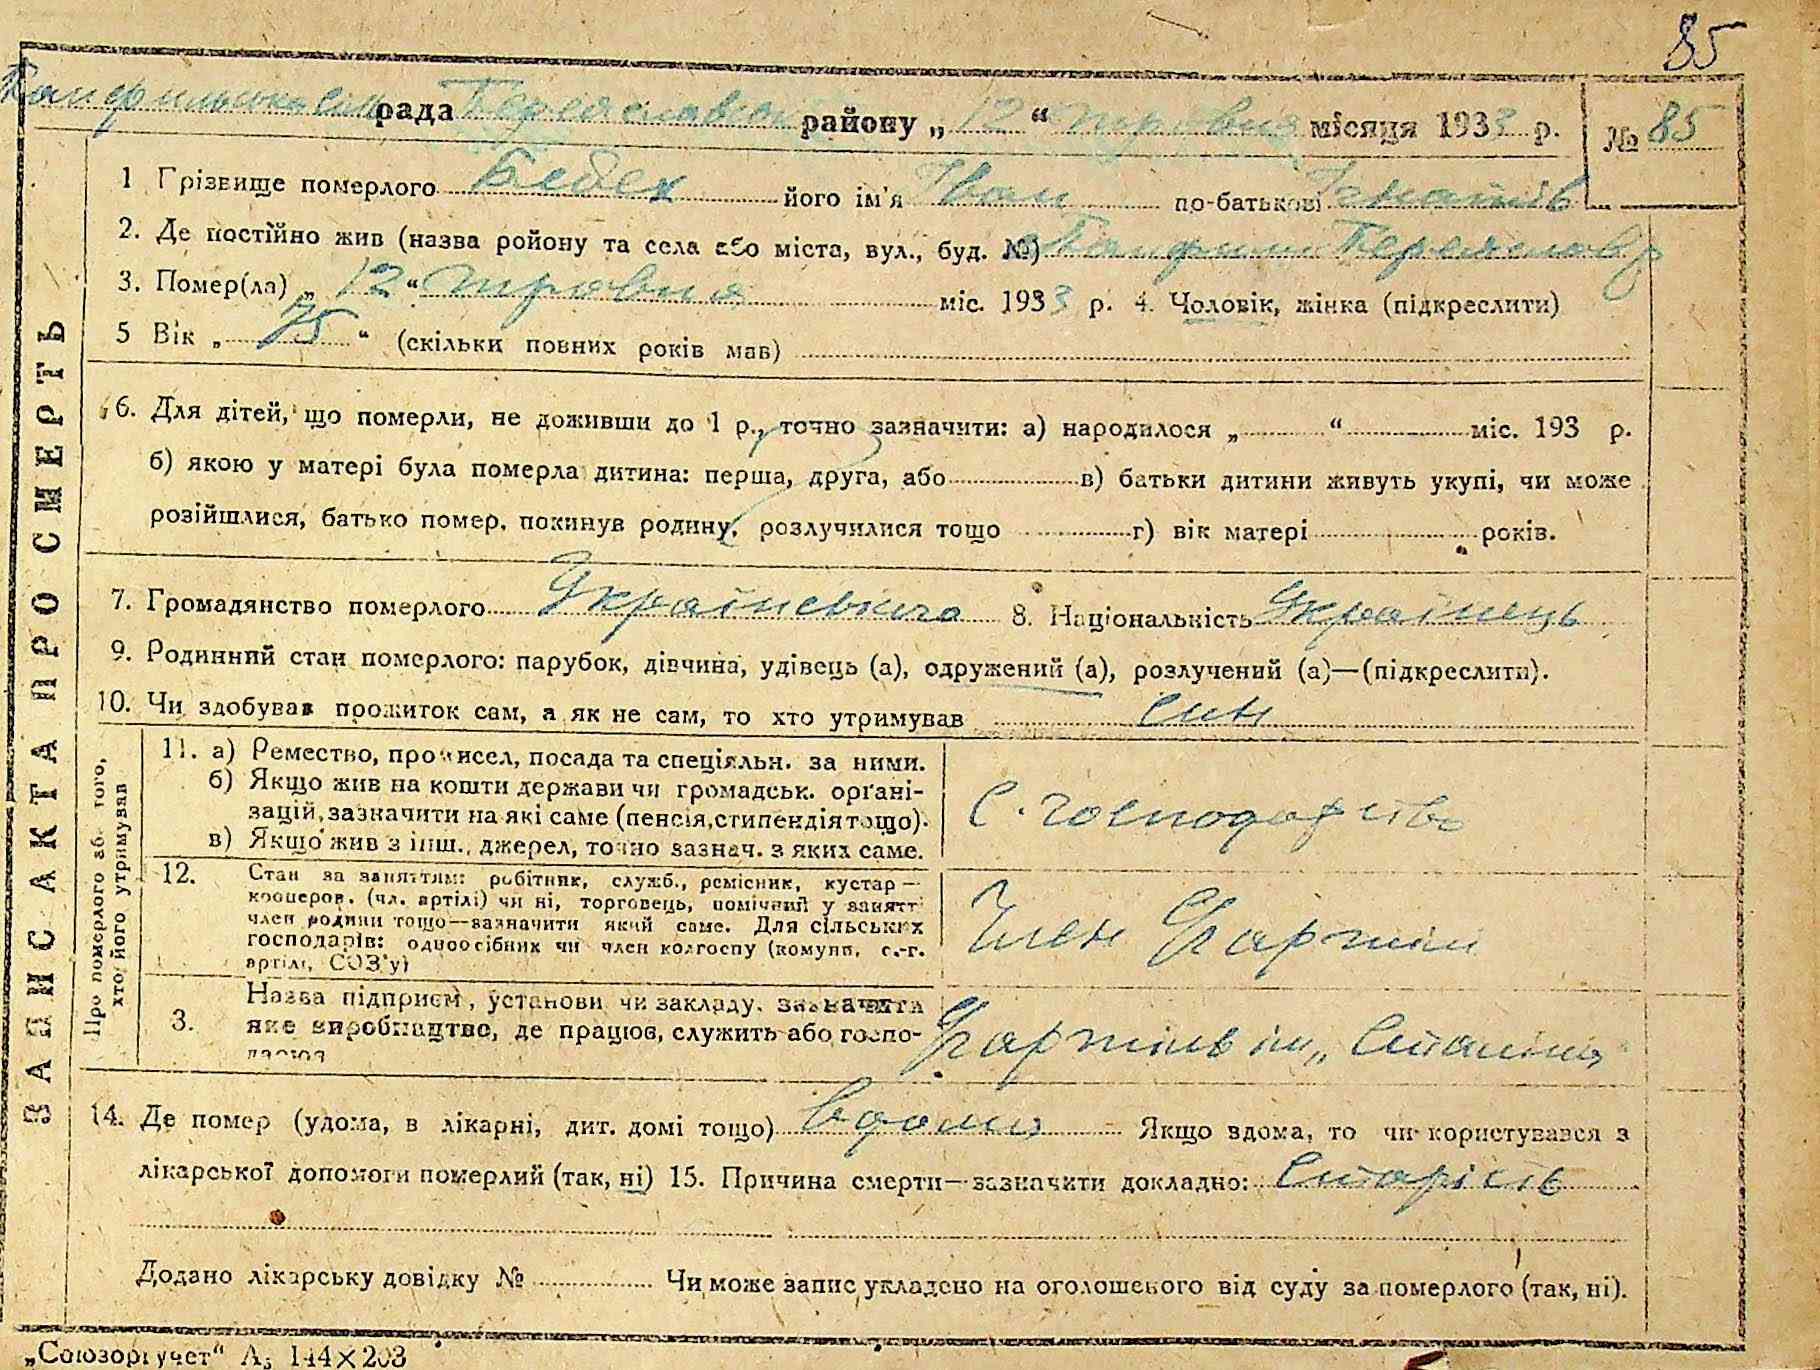 85
рада Переяславськ району „12“ травня місяця 1933 р. № 85
1 Грізвище померлого Бебех його ім'я Іван по-батькові Ігнатів
2. Де постійно жив (назва ройону та села або міста, вул., буд. №) Панфили Переяслав р
3. Помер(ла) „12“ травня міс. 1933 р. 4. Чоловік, жінка (підкреслити)
5 Вік „75“ (скільки повних років мав)
6. Для дітей, що померли, не доживши до 1 р., точно зазначити: а) народилося „ “ міс. 193 р.
б) якою у матері була померла дитина: перша, друга, або в) батьки дитини живуть укупі, чи може
розійшлися, батько помер, покинув родину, розлучилися тощо г) вік матері років.
7. Громадянство померлого Українське 8. Національність Українець
9. Родинний стан померлого: парубок, дівчина, удівець (а), одружений (а), розлучений (а)—(підкреслити).
10. Чи здобував прожиток сам, а як не сам, то хто утримував син
ЗАПИС АКТА ПРО СМЕРТЬ
Про померлого або того,
хто його утримував
11. а) Ремество, промисел, посада та спеціяльн. за ними.
б) Якщо жив на кошти держави чи громадськ. органі-
зацій, зазначити на які саме (пенсія, стипендія тощо).
в) Якщо жив з інш. джерел, точно зазнач. з яких саме.
С. господарство
12. Стан за заняттям: робітник, служб., ремісник, кустар—
кооперов. (чл. артілі) чи ні, торговець, помічний у занятті
член родини тощо—зазначити який саме. Для сільських
господарів: одноосібник чи член колгоспу (комуни, с.-г.
артілі, СОЗ'у)
Член Ѓартіли
3. Назва підприєм, установи чи закладу, зазначити
яке виробництво, де працюв, служить або госпо-
дарює
Гартіль ім „Сталіна
14. Де помер (удома, в лікарні, дит. домі тощо) вдома Якщо вдома, то чи користувався з
лікарської допомоги померлий (так, ні) 15. Причина смерти—зазначити докладно: Старість
Додано лікарську довідку № Чи може запис укладено на оголошеного від суду за померлого (так, ні).
„Союзоргучет“ А₅ 144×203